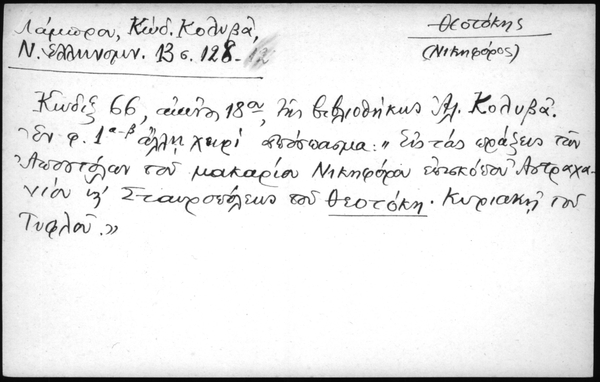 Λάμπρου, Κώδ. Κολυβᾶ,
Ν. Ἑλληνομν. 13 σ. 128-
Θεοτόκης
(Νικηφόρος)
Κώδιξ 66, αἰῶνος 18ου, τῆς βιβλιοθήκης Ἀλ. Κολυβᾶ.
Ἐν φ. 1α-β ἄλλῃ χειρὶ ἀπόσπασμα: „Εἰς τὰς πράξεις τῶν
Ἀποστόλων τοῦ μακαρίου Νικηφόρου ἐπισκόπου Ἀστραχα-
νίου κ' Σταυροπόλεως τοῦ Θεοτόκη. Κυριακῇ τοῦ
Τυφλοῦ.”